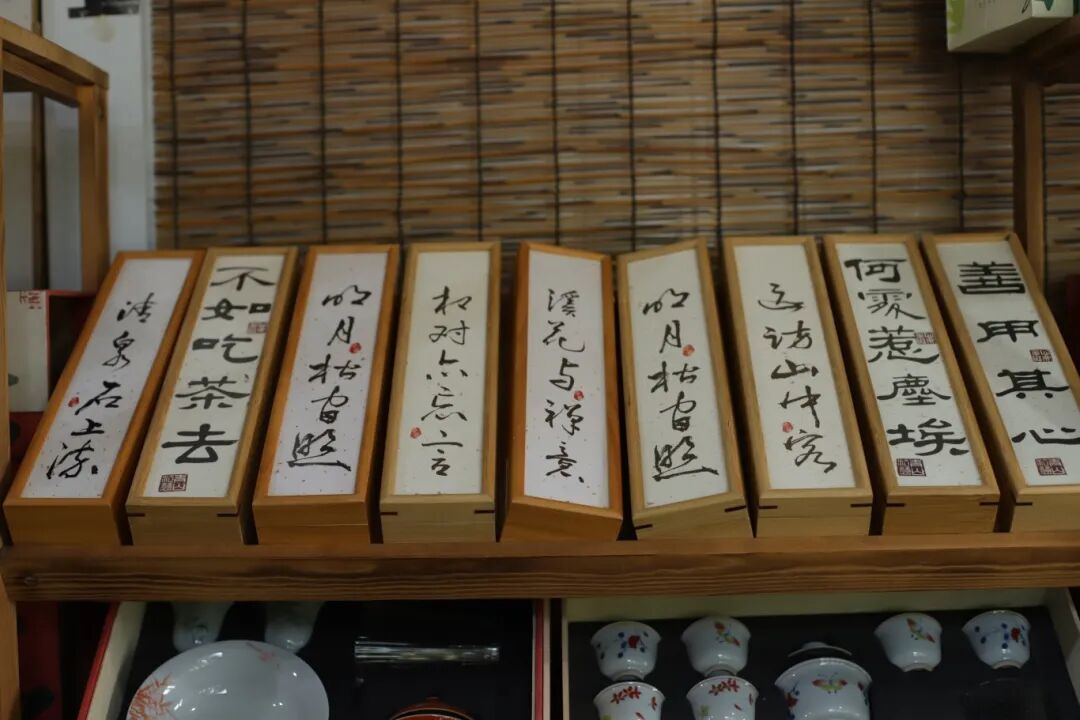 清泉石上流
不如吃茶去
明月松间照
相对亦忘言
溪花与禅意
明月松间照
远访山中客
何处惹塵埃
善用其心